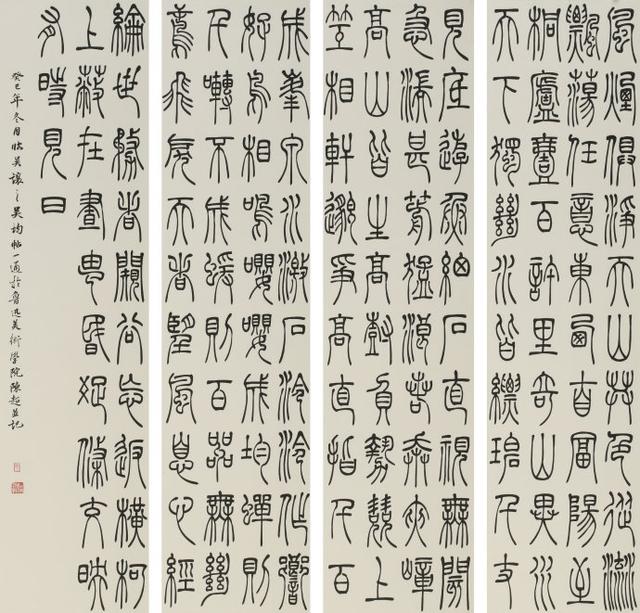 風煙俱淨天山共色從流
飄蕩任意東西自富陽至
桐廬壹百許里奇山異水
天下獨絕水皆縹碧千丈
見底遊魚細石直視無閡
急湍甚箭猛浪若奔夾嶂
高山皆生高樹負勢競上
笠相軒邈爭高直指千百
成峯泉水激石泠泠作響
好鳥相鳴嚶嚶成均蟬則
千囀不成蝯則百嘂無絕
鳶飛戾天者望風息心經
綸世務者闚谷忘返橫柯
上蔽在晝昏疏條交映
有時見日
癸巳年冬月臨吴讓之吴均帖一通於魯迅美術學院陳超並記